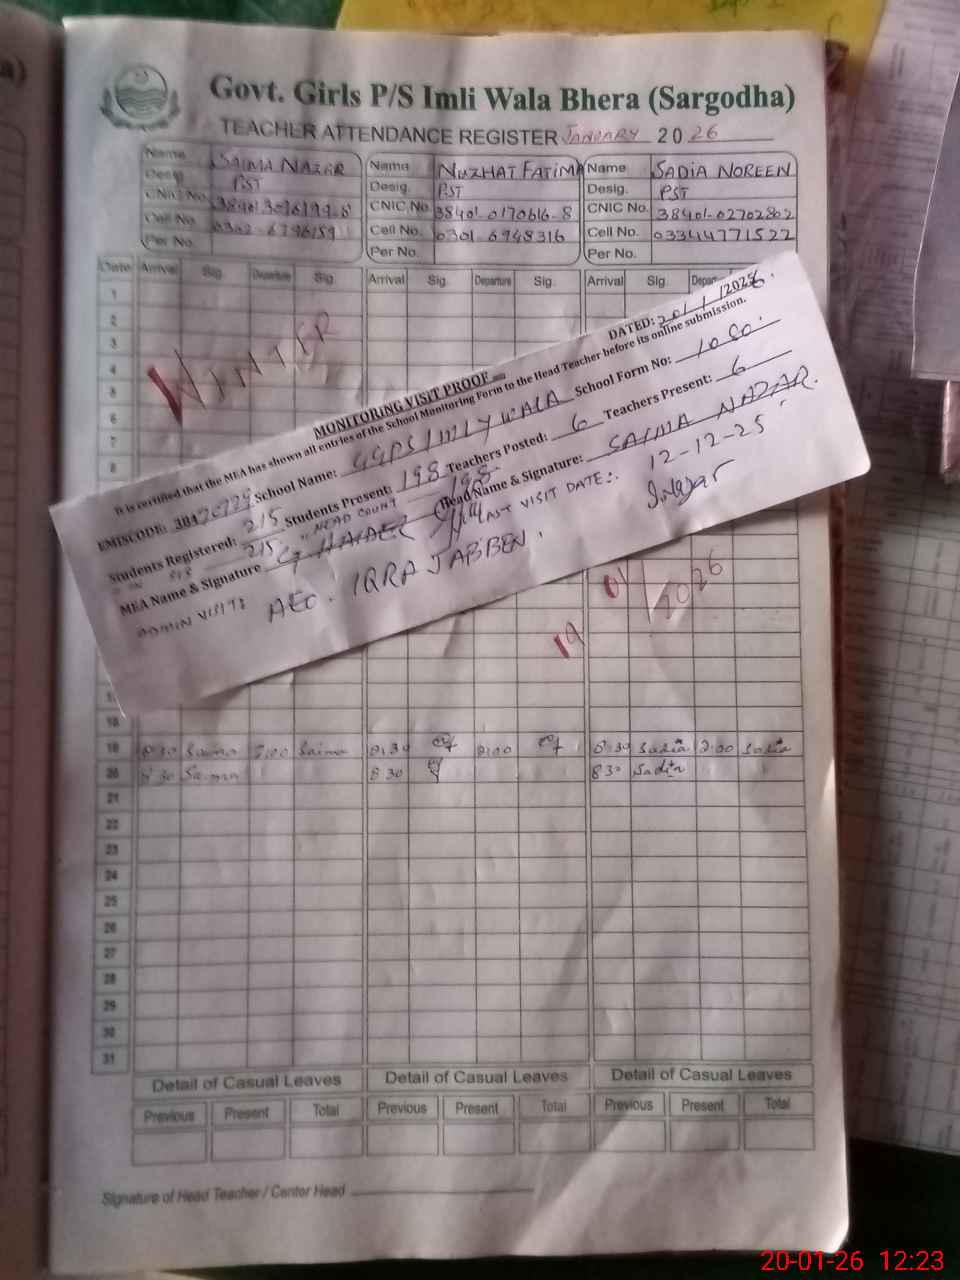 Govt. Girls P/S Imli Wala Bhera (Sargodha)
TEACHER ATTENDANCE REGISTER JANUARY 2026
Name SAIMA NAZAR Name NUZHAT FATIMA Name SADIA NOREEN
Desig. PST Desig. PST Desig. PST
CNIC No. CNIC No. 38401-0170616-8 CNIC No. 38401-02702802
Cell No. 0302-6796159 Cell No. 0301-6948316 Cell No. 03344771522
Per No. Per No. Per No.
Date Arrival Sig. Departure Sig. Arrival Sig. Departure Sig. Arrival Sig.
1
2
3
4
5
6
7
8
WINTER
MONITORING VISIT PROOF DATED: 20/1/2026
It is certified that the MEA has shown all entries of the School Monitoring Form to the Head Teacher before its online submission.
EMISCODE: School Name: GGPS IMLY WALA School Form No: 1080
Students Registered: 215 Students Present: 198 Teachers Posted: 6 Teachers Present: 6
215 HEAD COUNT 198
MEA Name & Signature G. HAIDER Head Name & Signature: SAIMA NAZAR.
LAST VISIT DATE:. 12-12-25
ADMIN VISIT: AEO. IQRA JABBEN.
19 01/2026
18
19 8:30 Saima 2:00 Saima 8:30 2:00 8:30 Sadia 2:00 Sadia
20 8:30 Saima 8 30 8 30 Sadia
21
22
23
24
25
26
27
28
29
30
31
Detail of Casual Leaves Detail of Casual Leaves Detail of Casual Leaves
Previous Present Total Previous Present Total Previous Present Total
Signature of Head Teacher / Center Head
20-01-26 12:23